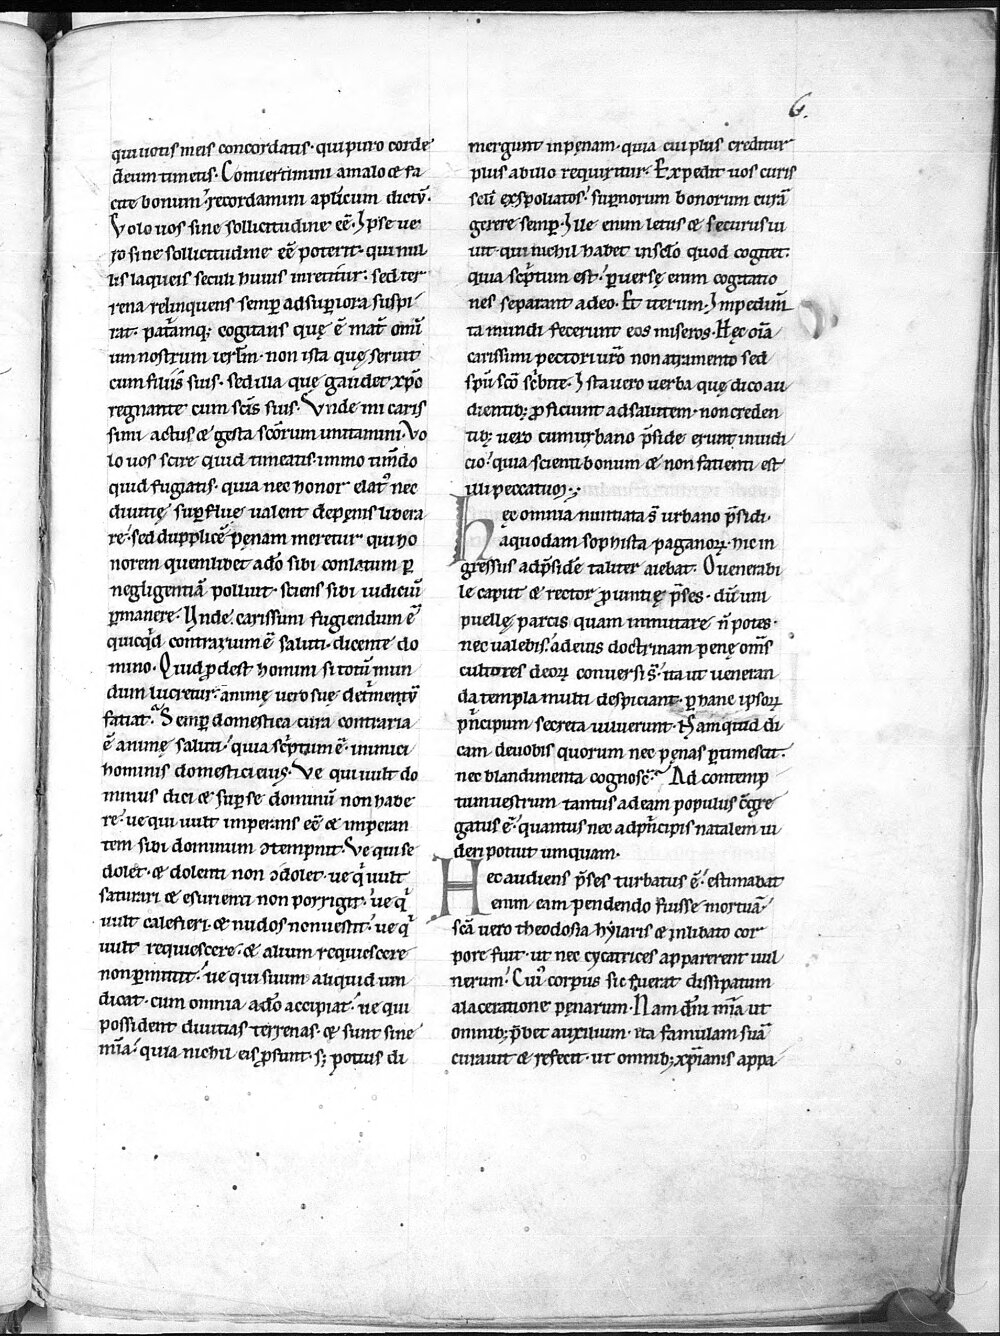 6.
qui uotis meis concordatis· qui puro corde
deum timetis. Conuertimini a malo & fa
cite bonum· recordamini aplicum dictū·
Volo uos sine sollicitudine eē. Ipse ue
ro sine sollicitudine eē poterit· qui nul
lis laqueis seculi huius inretitur: sed ter
rena relinquens semp ad supiora suspi
rat. patriamq; cogitans quę ē mat̄ omīu
um nostrum ierlm̄· non ista quę seruit
cum filiis suis· sed illa quę gaudet xp̄o
regnante cum scīs suis. Vnde mi caris
simi actus & gesta scōrum imitamini. Vo
lo uos scire quid timeatis· immo timdo
quid fugiatis· quia nec honor elat' nec
diuitię supfluę ualent de penis libera
re· sed dupplicē penam meretur qui ho
norem quemlibet a dō sibi conlatum p
negligentiā polluit· sciens sibi iudiciū
pmanere. Vnde carissimi fugiendum ē
quicqd contrarium ē saluti· dicente do
mino. Quid pdest homini si totū mun
dum lucretur· animę uero suę detrimentū
faciat. Semp domestica cura contraria
ē animę saluti· quia scptum ē· inimici
hominis domestici eius. Ve qui uult do
minus dici & sup se dominū non habe
re· ue qui uult imperans eē & imperan
tem sibi dominum ɔtempnit. Ve qui se
dolet· & dolenti non ɔdolet· ue q uult
saturari & esurienti non porrigit· ue q
uult calefieri & nudos non uestit· ue q
uult requiescere· & alium requiescere
non pmittit· ue qui suum aliquid uin
dicat· cum omnia a dō accipiat· ue qui
possident diuitias terrenas· & sunt sine
mīa· quia nichil eis psunt· s; potius di
mergunt in penam· quia cui plus creditur
plus ab illo requiritur. Expedit uos curis
scli exspoliatos· supnorum bonorum curā
gerere semp. Ille enim letus & securus ui
uit· qui nichil habet in sclo quod cogitet.
quia scptum est· puersę enim cogitatio
nes separant a deo. Et iterum. Impedim
ta mundi fecerunt eos miseros. Hęc oīa
carissimi pectori uro non atramento sed
spū scō scbite. Ista uero uerba quę dico au
dientib; pficiunt ad salutem· non creden
tib; uero cum urbano pside erunt in iudi
cio· quia scienti bonum & non facienti est
illi peccatum.
Hec omnia nuntiata s̄ urbano psidi·
a quodam sophista paganoꝝ· hic in
gressus ad psidē taliter aiebat. O uenerabi
le caput & rector puintię pses· dū uni
puellę parcis quam inmutare n̄ potes·
nec ualebis· ad eius doctrinam penę oms
cultores deoꝝ conuersi s̄· ita ut ueneran
da templa multi despiciant· p hanc ipsoꝝ
pncipum secreta uiluerunt. Nam quid di
cam de uobis quorum nec pęnas ptimescit·
nec blandimenta cognosc̄. Ad contemp
tum uestrum tantus ad eam populus ɔgre
gatus ē· quantus nec ad pncipis natalem ui
deri potuit umquam·
Hec audiens pses turbatus ē· estimabat
enim eam pendendo fuisse mortuā·
scā uero theodosia hylaris & inlibato cor
pore fuit· ut nec cycatrices apparerent uul
nerum. Cui' corpus sic fuerat dissipatum
a laceratione penarum. Nam dni mīa ut
omnib; pbet auxilium· ita famulam suā
curauit & refecit· ut omnib; xpianis appa